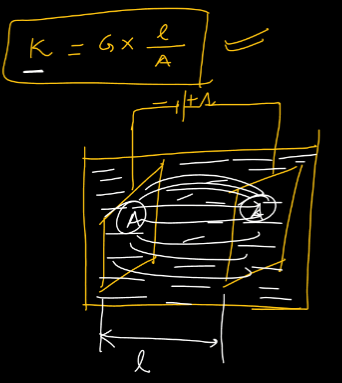 K = G × l/A
A A
l